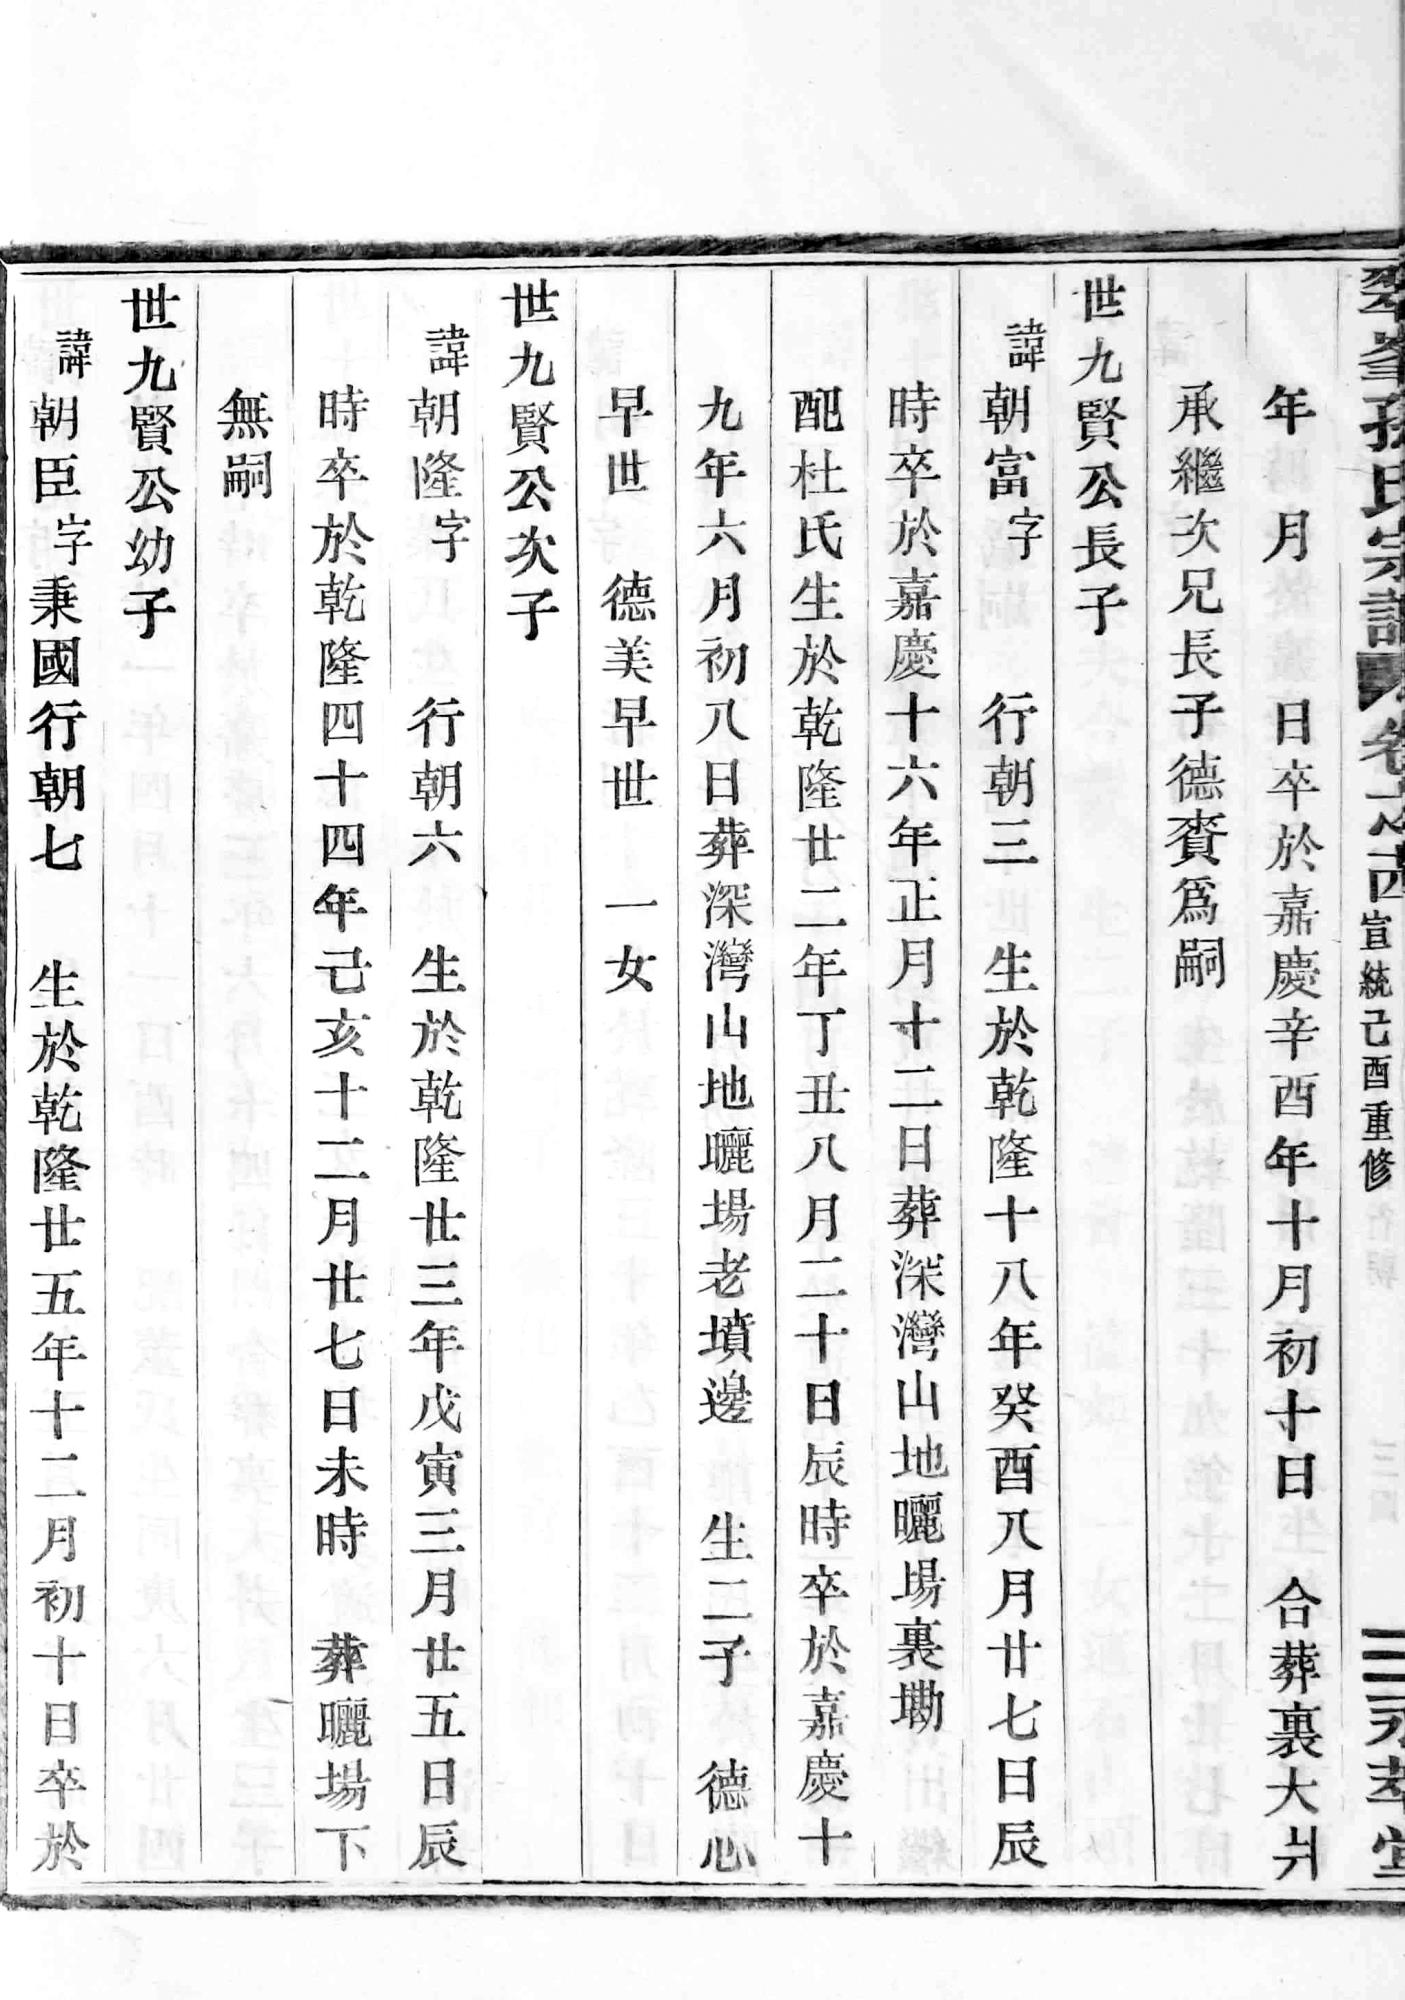 翠峯孫氏宗譜 卷之十四 宣統己酉重修 永萃堂
年 月 日卒於嘉慶辛酉年十月初十日 合葬裏大爿
承繼次兄長子德賚爲嗣
世九賢公長子
諱朝富字 行朝三 生於乾隆十八年癸酉八月廿七日辰
時卒於嘉慶十六年正月十二日葬深灣山地曬場裏墈
配杜氏生於乾隆廿二年丁丑八月二十日辰時卒於嘉慶十
九年六月初八日葬深灣山地曬場老墳邊 生二子 德心
早世 德美早世 一女
世九賢公次子
諱朝隆字 行朝六 生於乾隆廿三年戊寅三月廿五日辰
時卒於乾隆四十四年己亥十二月廿七日未時 葬曬場下
無嗣
世九賢公幼子
諱朝臣字秉國行朝七 生於乾隆廿五年十二月初十日卒於